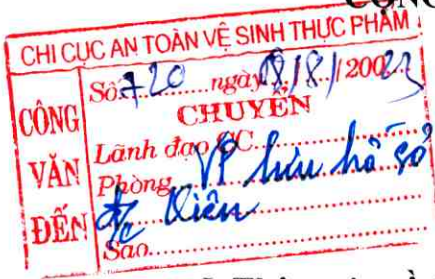 CỘNG
CHI CỤC AN TOÀN VỆ SINH THỰC PHẨM
CÔNG VĂN ĐẾN
Số: 720 ngày 08/8/2023
CHUYỂN
Lãnh đạo CC
Phòng VP lưu hồ sơ
đ/c Kiên
Sao